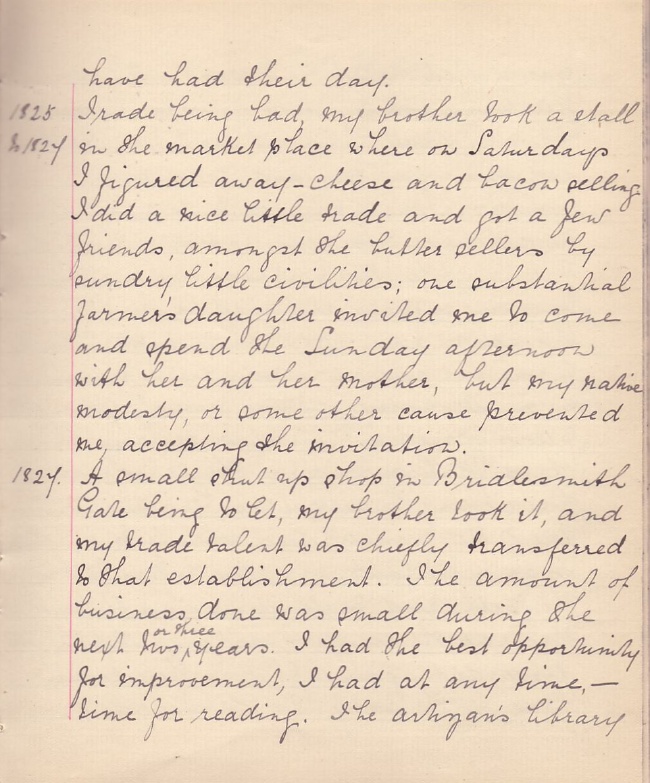 have had their day.
1825 Trade being bad, my brother took a stall
to 1827 in the market place where on Saturdays
I figured away - cheese and bacon selling
I did a nice little trade and got a few
friends, amongst the butter sellers by
sundry little civilities; one substantial
farmer's daughter invited me to come
and spend the Sunday afternoon
with her and her mother, but my native
modesty, or some other cause prevented
me, accepting the invitation.
1827. A small shut up shop in Bridlesmith
Gate being to let, my brother took it, and
my trade talent was chiefly transferred
to that establishment. The amount of
business done was small during the
or three
next two years. I had the best opportunity
for improvement, I had at any time, —
time for reading. The artizan's library